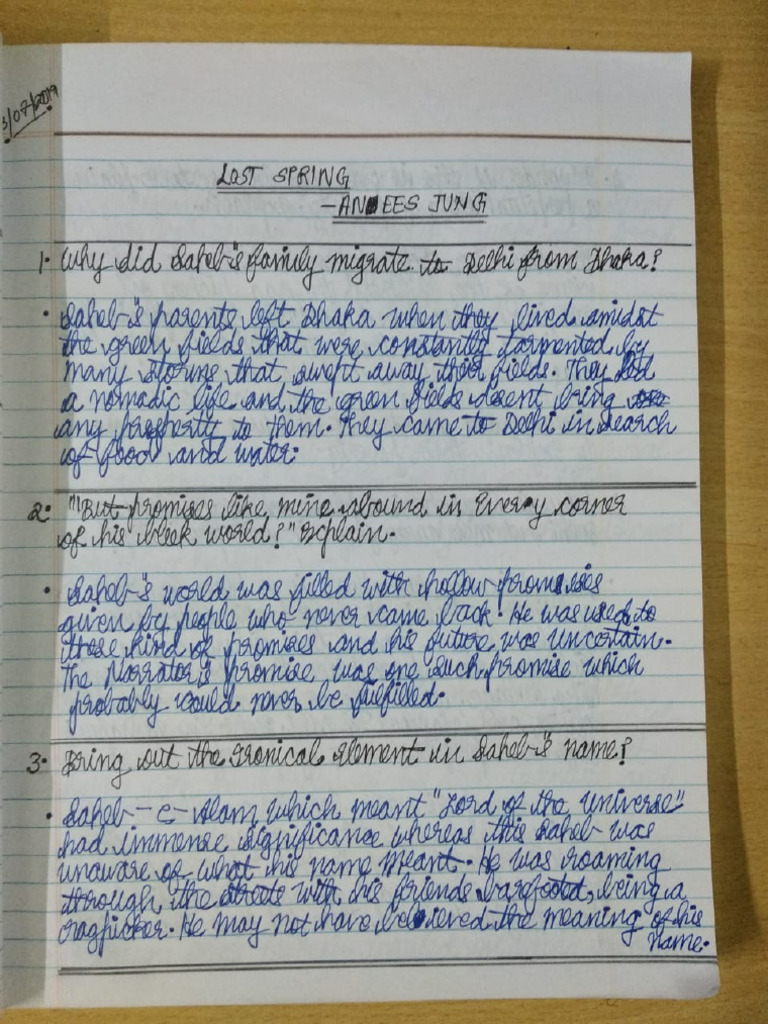 3/07/2019
LOST SPRING
-ANEES JUNG
1. Why did Saheb's family migrate to Delhi from Dhaka?
• Saheb's parents left Dhaka when they lived amidst
the green fields that were constantly tormented by
many storms that swept away their fields. They led
a nomadic life and the green fields doesnt bring
any prosperity to them. They came to Delhi in search
of food and water.
2. ""But promises like mine abound in Every corner
of his bleek world?" Explain.
• Saheb's world was filled with hollow promises
given by people who never came back. He was used to
these kind of promises and his future was uncertain.
The Narrator's promise was one such promise which
probably would never be fulfilled.
3. Bring out the Ironical element in Saheb's name?
• Saheb-e-Alam which meant "Lord of the universe"
had immense significance whereas this Saheb was
unaware of what his name meant. He was roaming
through the streets with his friends barefooted, being a
ragpicker. He may not have believed the meaning of his
name.